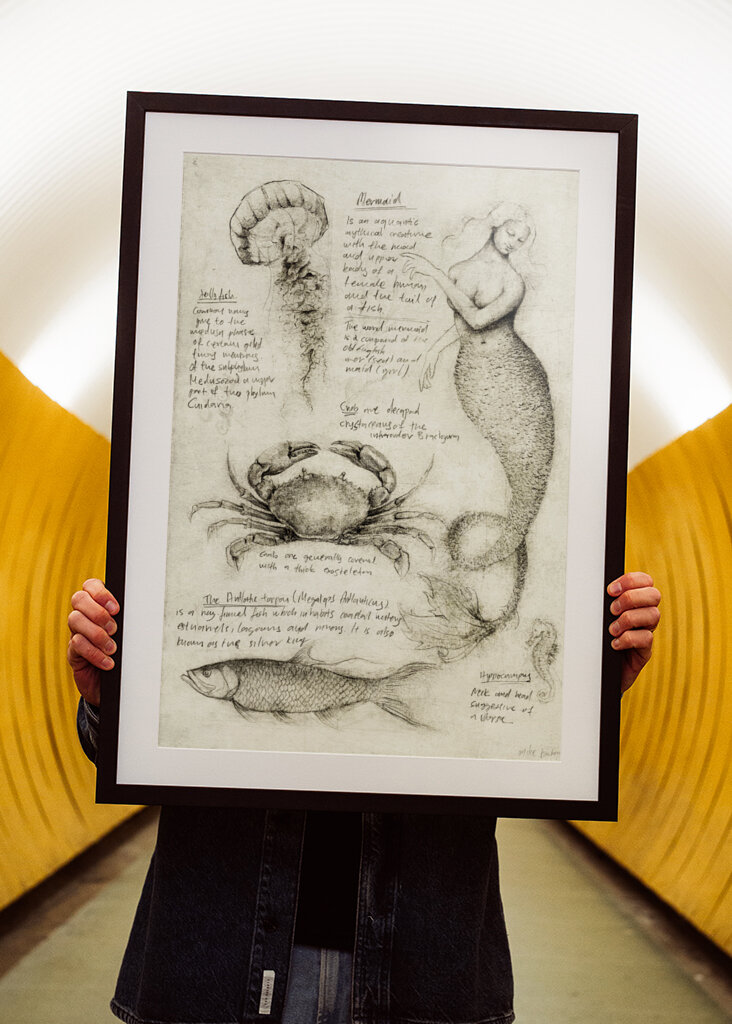 Mermaid
Is an aquatic
mythical creature
with the head
and upper
body of a
female human
and the tail of
a fish
The word mermaid
is a compound of the
old english
mer (sea) and
maid (girl)
Jellyfish
Common name
give to the
medusa phase
of certain
members
of the subphylum
Medusozoa a
part of the phylum
Cnidaria
Crab are decapod
crustaceans of the
infraorder Brachyura
Crab are generally covered
with a thick exoskeleton
The Atlantic tarpon (Megalops Atlanticus)
is a ray finned fish which inhabits coastal waters
estuaries, lagoons and rivers. It is also
known as the silver king
Hippocampus
Neck and head
suggestive of
a Horse
Mike